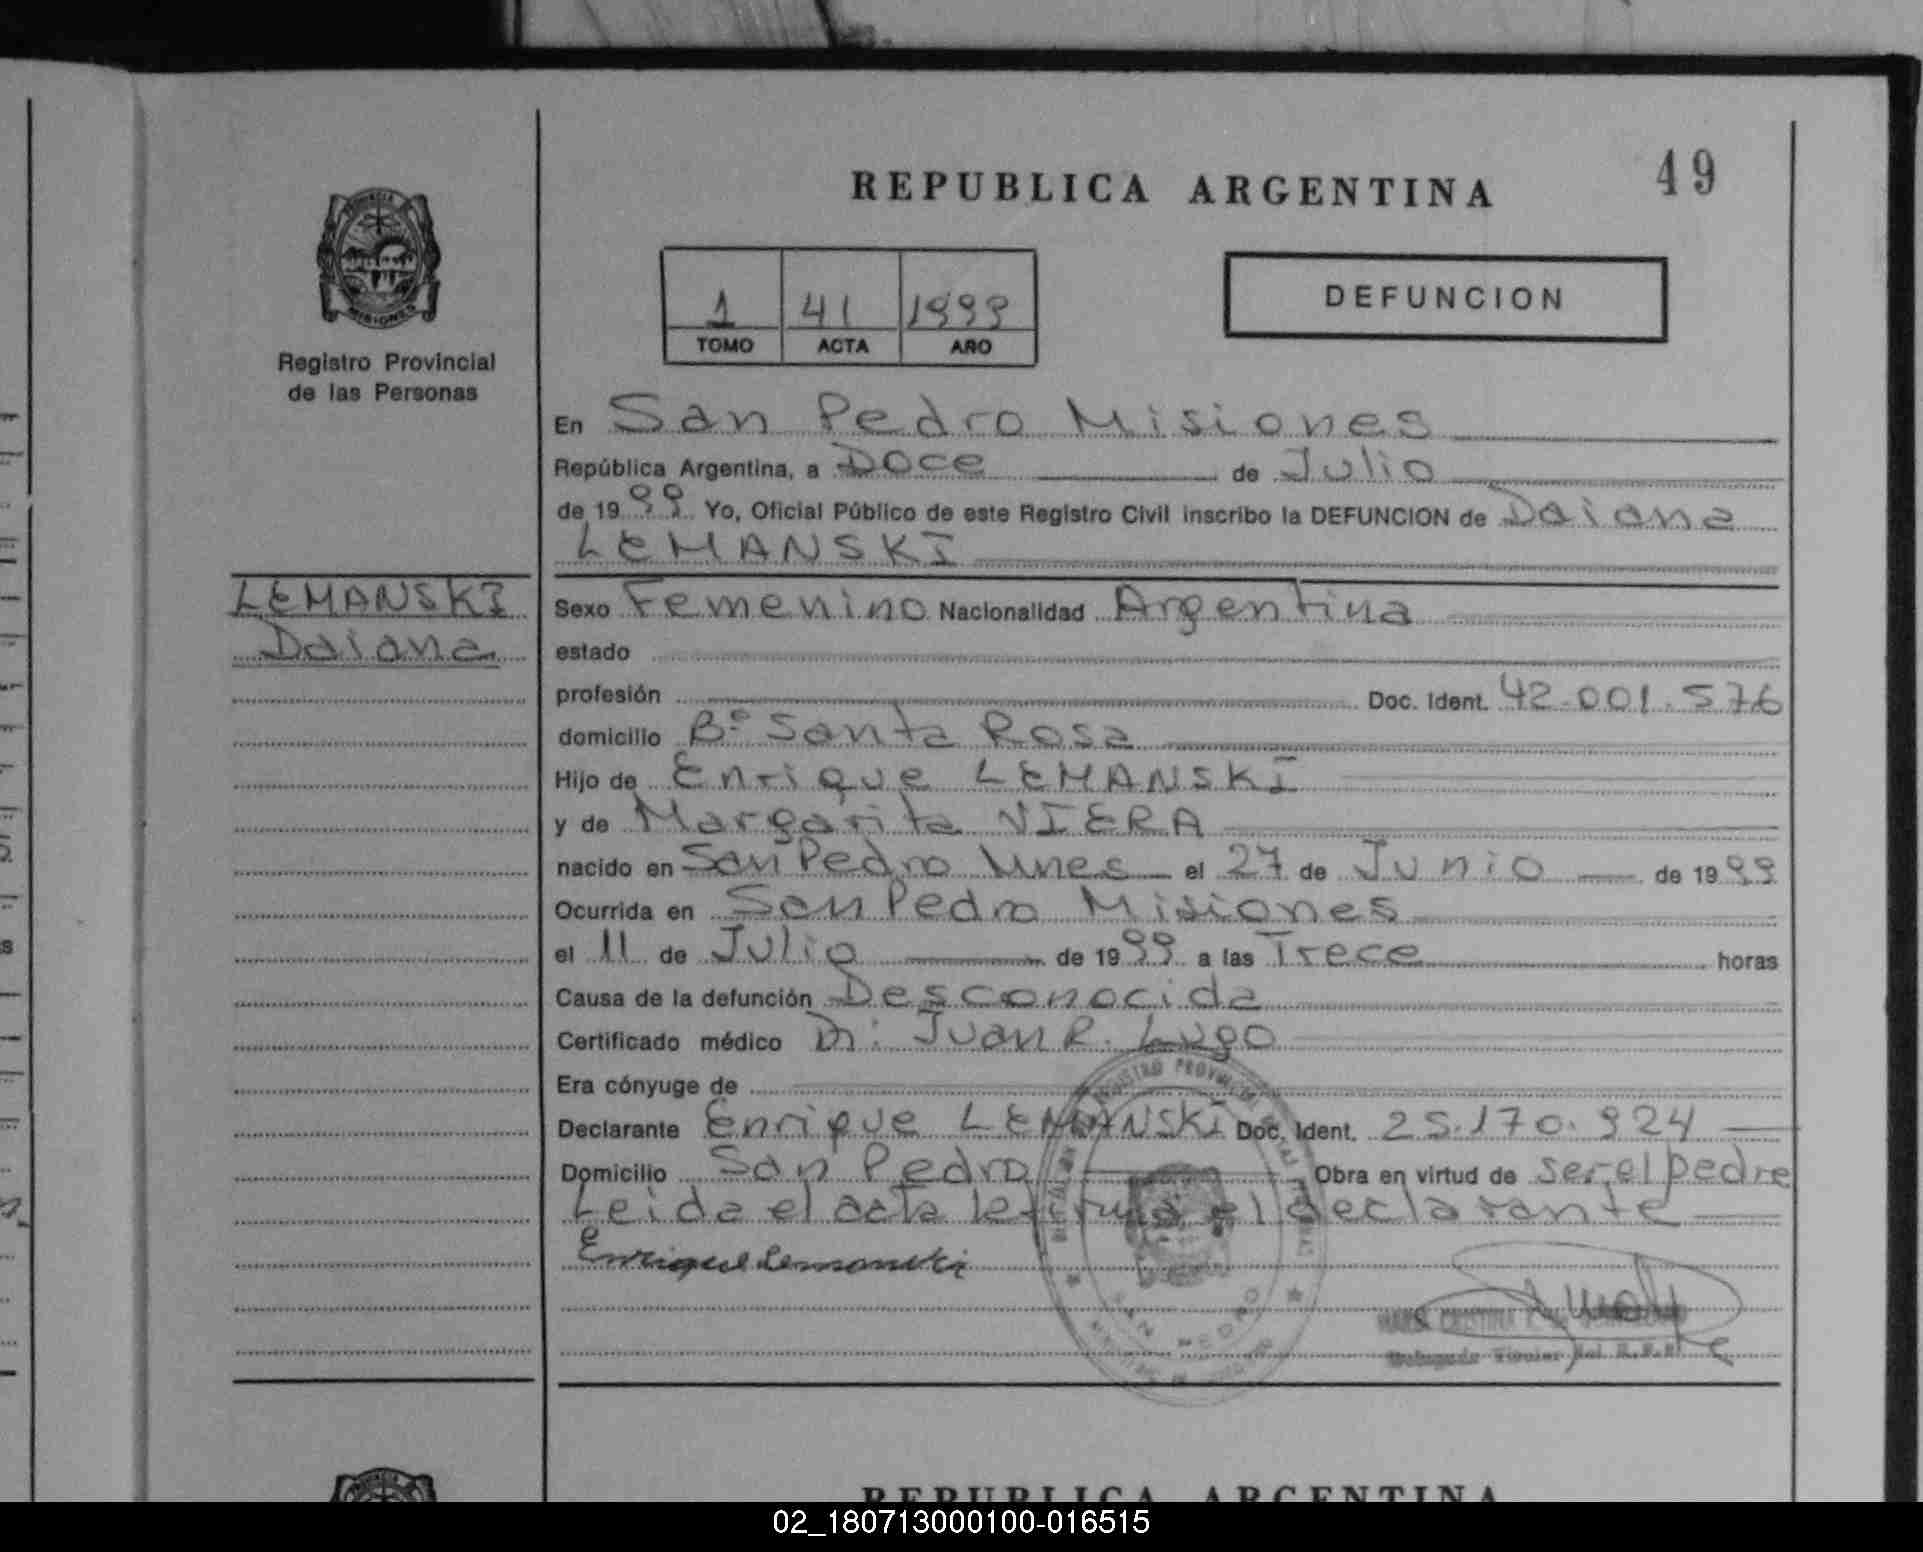 49
REPUBLICA ARGENTINA
PROVINCIA
MISIONES
Registro Provincial
de las Personas
1 41 1999
TOMO ACTA AÑO
DEFUNCION
En San Pedro Misiones
República Argentina, a Doce de Julio
de 1999 Yo, Oficial Público de este Registro Civil inscribo la DEFUNCION de Daiana
LEMANSKI
LEMANSKI
Daiana
Sexo Femenino Nacionalidad Argentina
estado
profesión Doc. Ident. 42.001.576
domicilio Bº Santa Rosa
Hijo de Enrique LEMANSKI
y de Margarita VIERA
nacido en San Pedro Mnes el 27 de Junio de 1999
Ocurrida en San Pedro Misiones
el 11 de Julio de 1999 a las Trece horas
Causa de la defunción Desconocida
Certificado médico Dr: Juan R. Lugo
Era cónyuge de
Declarante Enrique LEMANSKI Doc. Ident. 25.170.924
Domicilio San Pedro Obra en virtud de ser el padre
Leida el acta la firma el declarante
Enrique Lemanski
REGISTRO PROVINCIAL DE LAS PERSONAS
SAN PEDRO
Delegada Titular del R.P.P.
REPUBLICA ARGENTINA
02_180713000100-016515